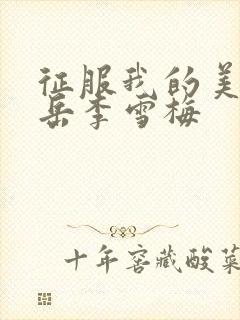 征服我的美
岳李雪梅
十年窖藏酸菜